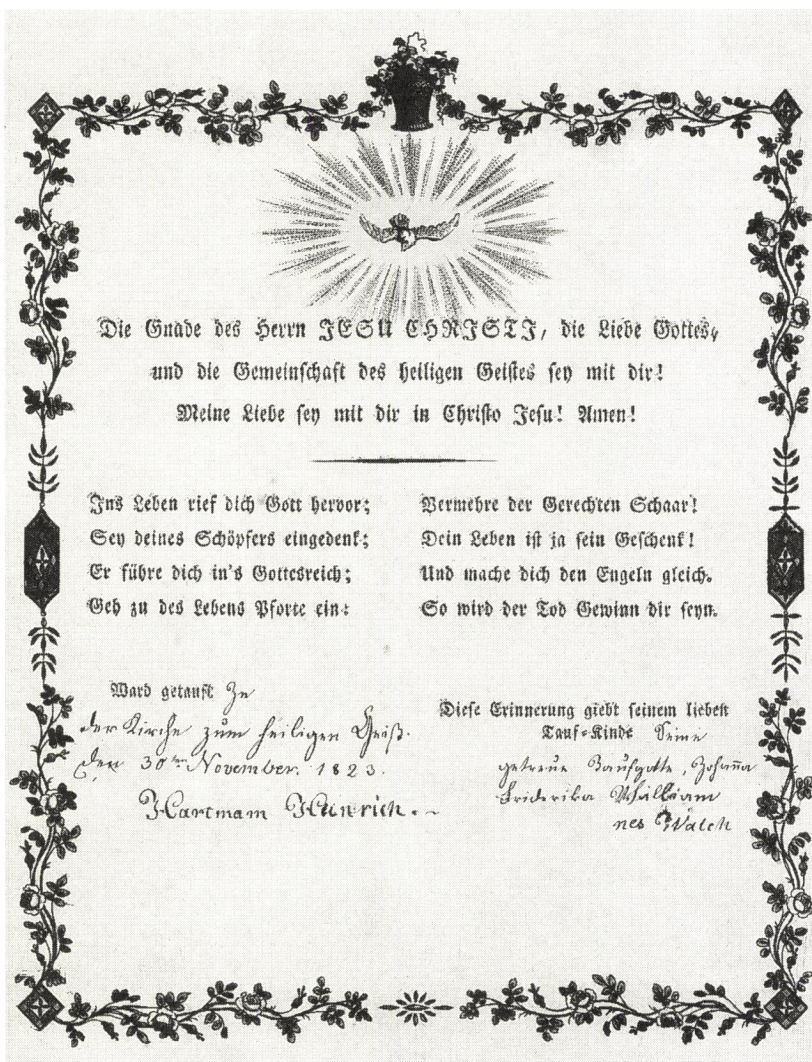 Die Gnade des Herrn JESU CHRISTI, die Liebe Gottes,
und die Gemeinschaft des heiligen Geistes sey mit dir!
Meine Liebe sey mit dir in Christo Jesu! Amen!
Ins Leben rief dich Gott hervor;
Sey deines Schöpfers eingedenk;
Er führe dich in's Gottesreich;
Geh zu des Lebens Pforte ein:
Vermehre der Gerechten Schaar!
Dein Leben ist ja sein Geschenk!
Und mache dich den Engeln gleich.
So wird der Tod Gewinn dir seyn.
Ward getauft Zu
der Kirche zum heiligen Geist.
Den 30ten November. 1823.
Hartmam Heinrich.
Diese Erinnerung giebt seinem lieben
Tauf-Kinde Seine
getreue Taufgotte, Johanna
Friderika
nes Walch